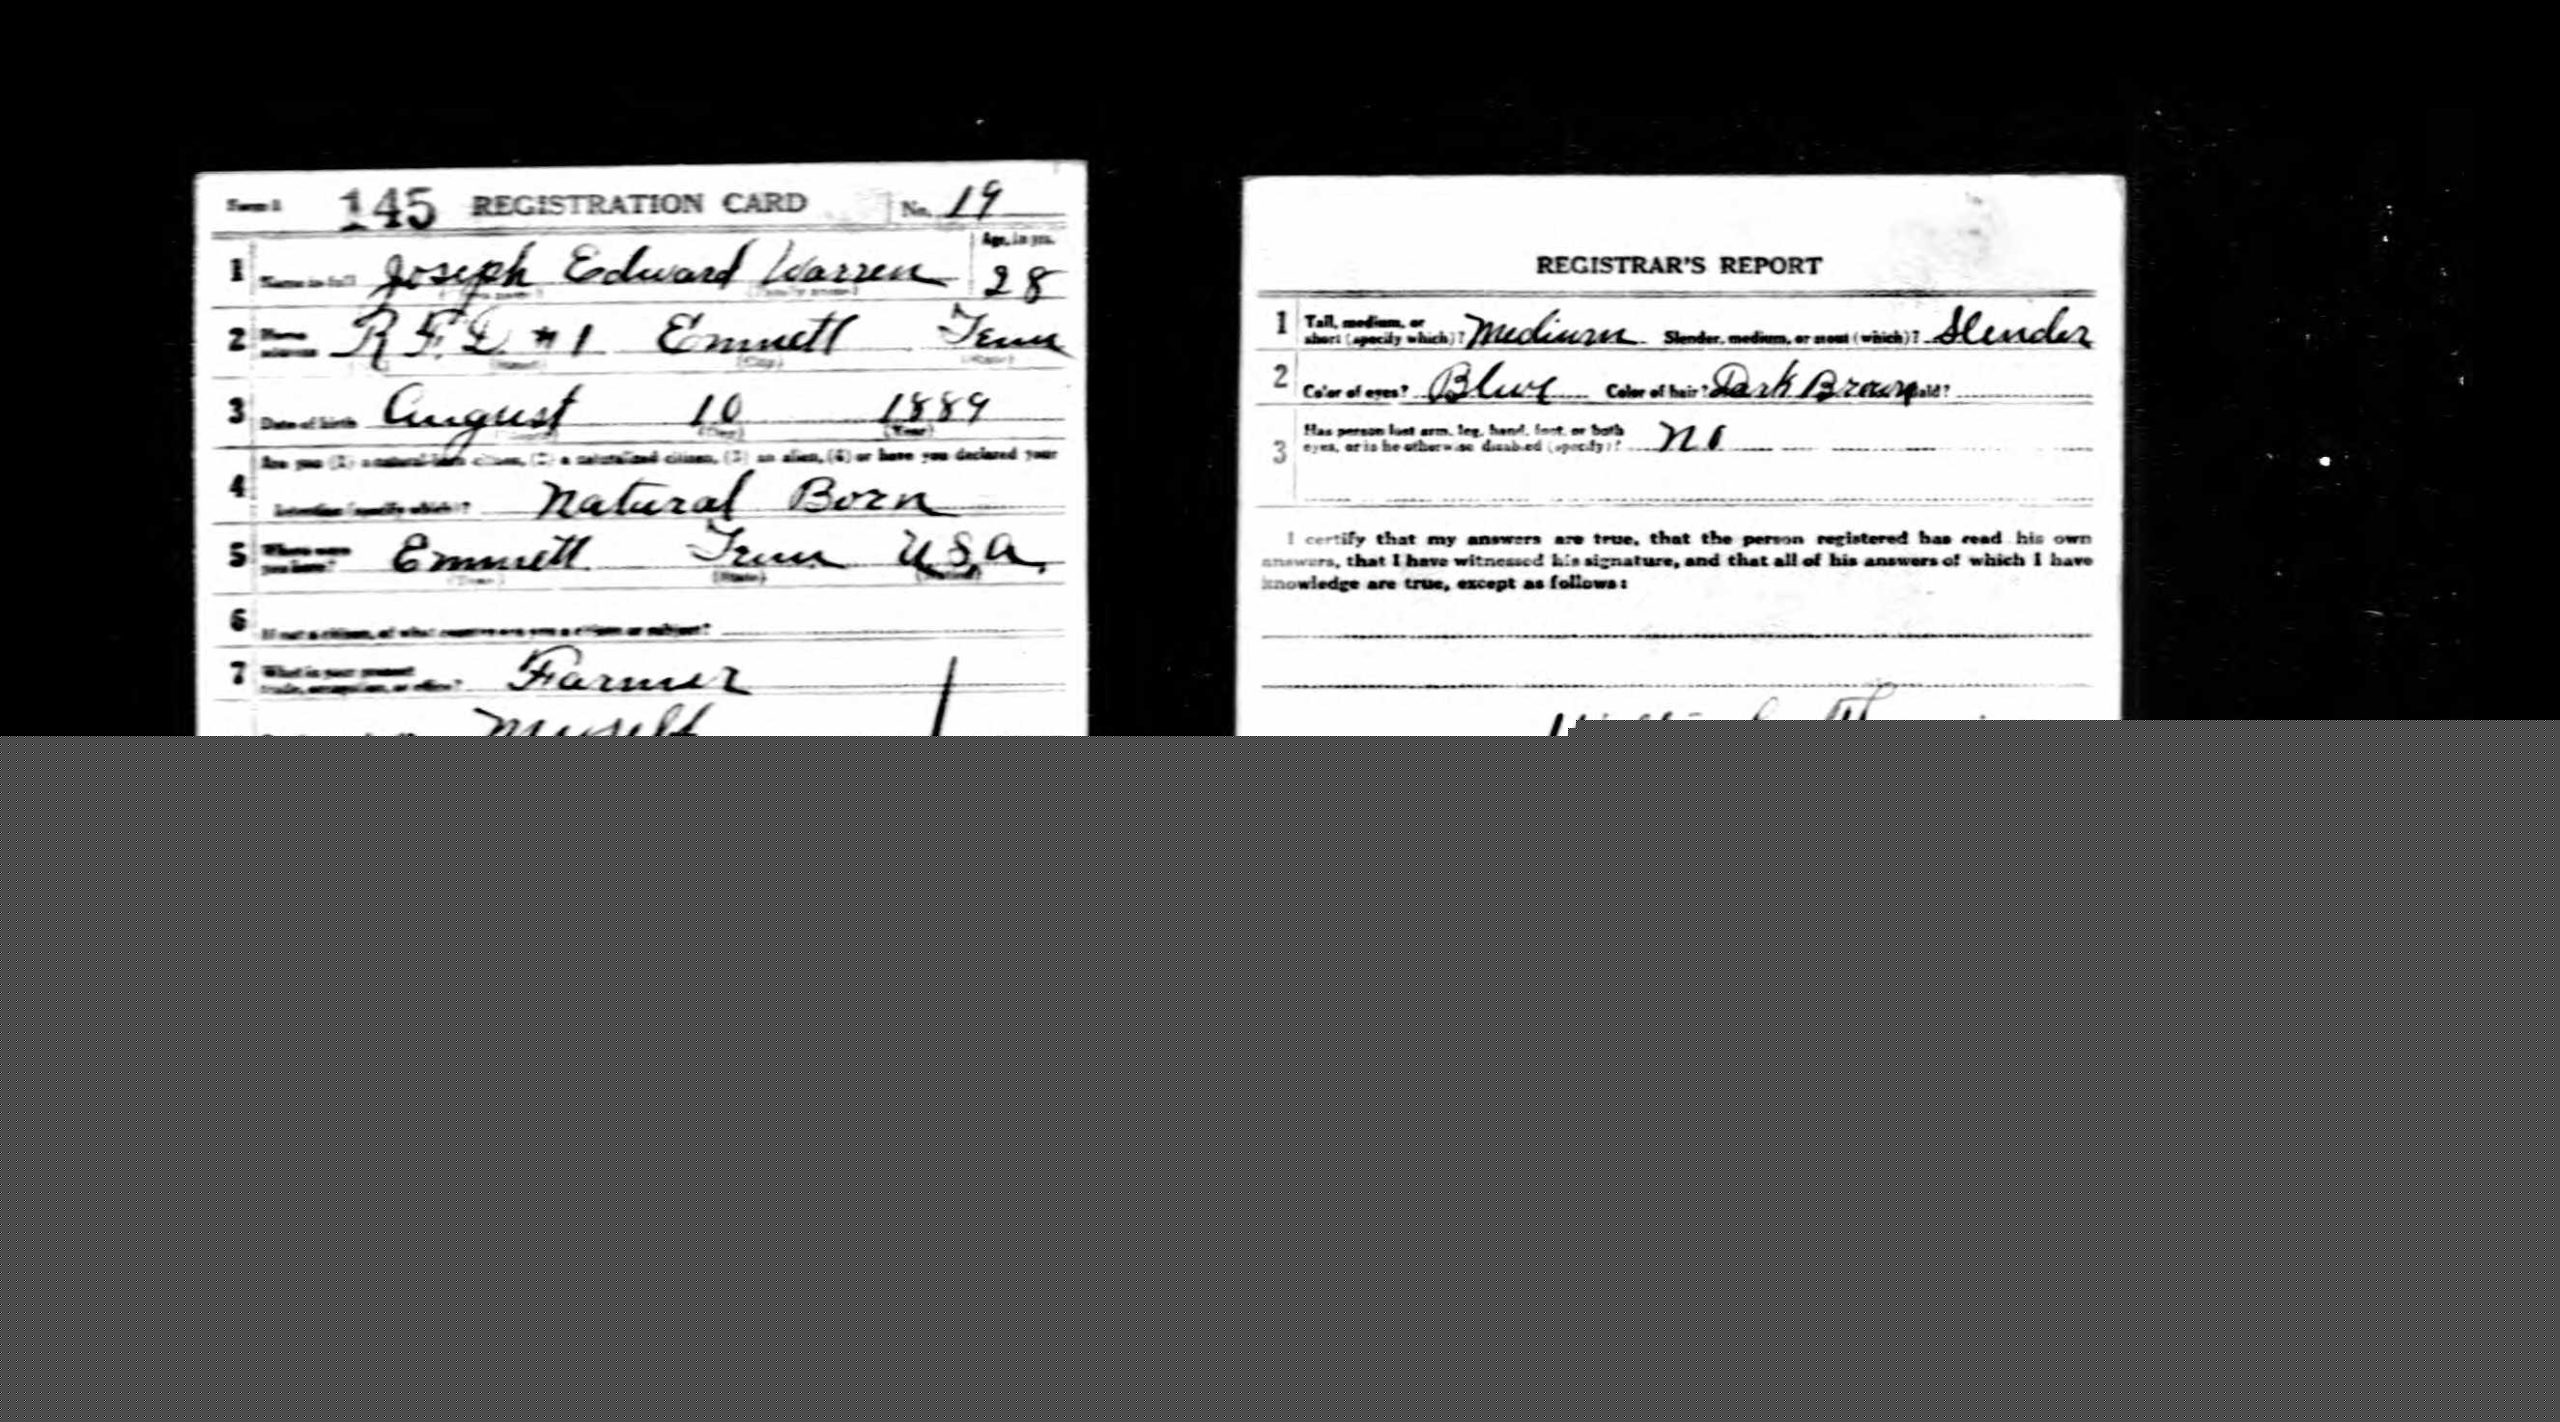 Form 1 145 REGISTRATION CARD No. 19
1 Name in full Joseph Edward Warren Age, in yrs. 28
(Family name)
2 Home address R.F.D. #1 Emmett Tenn
(Street) (City) (State)
3 Date of birth August 10 1889
(Day) (Year)
Are you (1) a natural-born citizen, (2) a naturalized citizen, (3) an alien, (4) or have you declared your
4 intention (specify which)? Natural Born
5 Where were you born? Emmett Tenn U.S.A.
(Town) (State) (Nation)
6 If not a citizen, of what country are you a citizen or subject?
7 What is your present
trade, occupation, or office? Farmer
Myself
REGISTRAR'S REPORT
1 Tall, medium, or
short (specify which)? Medium Slender, medium, or stout (which)? Slender
2 Color of eyes? Blue Color of hair? Dark Brown Bald?
Has person lost arm, leg, hand, foot, or both
3 eyes, or is he otherwise disabled (specify)? no
I certify that my answers are true, that the person registered has read his own
answers, that I have witnessed his signature, and that all of his answers of which I have
knowledge are true, except as follows: